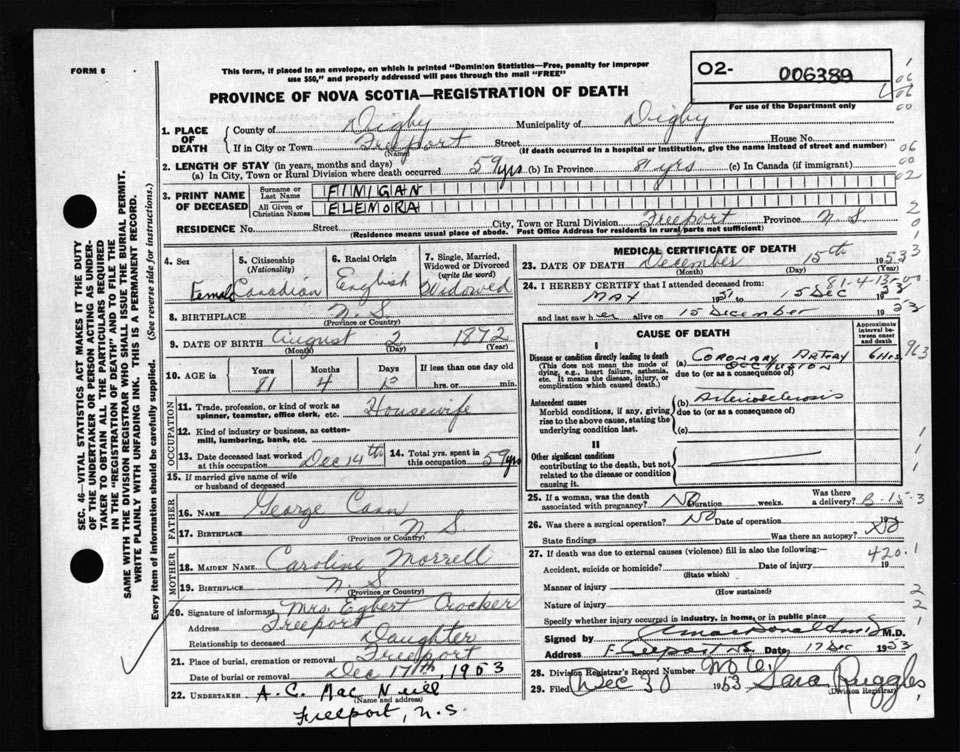 FORM 6
This form, if placed in an envelope, on which is printed "Dominion Statistics—Free, penalty for improper
use $50," and properly addressed will pass through the mail "FREE"
O2- 006389
For use of the Department only
PROVINCE OF NOVA SCOTIA—REGISTRATION OF DEATH
1. PLACE OF DEATH County of Digby Municipality of Digby
If in City or Town Freeport Street House No.
(Name) (If death occurred in a hospital or institution, give name instead of street and number)
2. LENGTH OF STAY (in years, months and days)
(a) In City, Town or Rural Division where death occurred 59 yrs (b) In Province 81 yrs (c) In Canada (if immigrant)
3. PRINT NAME OF DECEASED Surname or Last Name FINIGAN
All Given or Christian Names ELENORA
RESIDENCE No. Street City, Town or Rural Division Freeport Province N S
(Residence means usual place of abode. Post Office Address for residents in rural parts not sufficient)
4. Sex Female
5. Citizenship (Nationality) Canadian
6. Racial Origin English
7. Single, Married, Widowed or Divorced (write the word) Widowed
8. BIRTHPLACE N. S.
(Province or Country)
9. DATE OF BIRTH August 2 1872
(Month) (Day) (Year)
10. AGE in Years 81 Months 4 Days 13 If less than one day old
hrs. or min.
OCCUPATION
11. Trade, profession, or kind of work as spinner, teamster, office clerk, etc. Housewife
12. Kind of industry or business, as cotton-mill, lumbering, bank, etc.
13. Date deceased last worked at this occupation Dec 14th 14. Total yrs. spent in this occupation 59 yrs
15. If married give name of wife or husband of deceased
FATHER
16. NAME George Cann
17. BIRTHPLACE N. S.
(Province or Country)
MOTHER
18. MAIDEN NAME Caroline Morrell
19. BIRTHPLACE N. S
(Province or Country)
20. Signature of informant Mrs. Egbert Crocker
Address Freeport
Relationship to deceased Daughter
21. Place of burial, cremation or removal Freeport
Date of burial or removal Dec 17th, 1953
22. UNDERTAKER A. C. Mac Neill
(Name and address)
Freeport, N. S.
MEDICAL CERTIFICATE OF DEATH
23. DATE OF DEATH December 15th 1953
(Month) (Day) (Year)
24. I HEREBY CERTIFY that I attended deceased from: 81-4-13
May 19 15 Dec 1953
and last saw her alive on 15 December 53
CAUSE OF DEATH
Approximate interval between onset and death
I
Disease or condition directly leading to death (a) Coronary Artery Occlusion 6 Hrs
(This does not mean the mode of dying, e.g., heart failure, asthenia, etc. It means the disease, injury, or complication which caused death.)
due to (or as a consequence of)
Antecedent causes (b) Arteriosclerosis
Morbid conditions, if any, giving rise to the above cause, stating the underlying condition last.
due to (or as a consequence of)
(c)
II
Other significant conditions
contributing to the death, but not related to the disease or condition causing it.
25. If a woman, was the death associated with pregnancy? No Duration weeks. Was there a delivery?
26. Was there a surgical operation? No Date of operation 19
State findings Was there an autopsy? No
27. If death was due to external causes (violence) fill in also the following:— 420.1
Accident, suicide or homicide? Date of injury 19
(State which)
Manner of injury
(How sustained)
Nature of injury
Specify whether injury occurred in industry, in home, or in public place
Signed by M.D.
Address Freeport NS. Date, 17 Dec 1953
28. Division Registrar's Record Number
29. Filed Dec 30 1953 Sara Ruggles
(Division Registrar)
SEC. 46—VITAL STATISTICS ACT MAKES IT THE DUTY
OF THE UNDERTAKER OR PERSON ACTING AS UNDER-
TAKER TO OBTAIN ALL THE PARTICULARS REQUIRED
IN THE "REGISTRATION OF DEATH" AND TO FILE THE
SAME WITH THE DIVISION REGISTRAR WHO SHALL ISSUE THE BURIAL PERMIT.
WRITE PLAINLY WITH UNFADING INK. THIS IS A PERMANENT RECORD.
Every item of information should be carefully supplied. (See reverse side for instructions.)